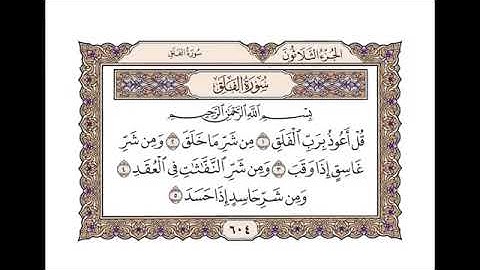 الجزء الثلاثون
سورة الفلق
سُورَةُ الْفَلَقِ
بِسْمِ اللَّهِ الرَّحْمَٰنِ الرَّحِيمِ
قُلْ أَعُوذُ بِرَبِّ الْفَلَقِ ١ مِن شَرِّ مَا خَلَقَ ٢ وَمِن شَرِّ
غَاسِقٍ إِذَا وَقَبَ ٣ وَمِن شَرِّ النَّفَّاثَاتِ فِي الْعُقَدِ ٤
وَمِن شَرِّ حَاسِدٍ إِذَا حَسَدَ ٥
٦٠٤